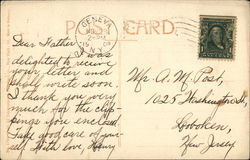 POST CARD.
GENEVA
Dear Father
I was
delighted to receive
your letter and
will write soon.
I thank you very
much for the clip-
pings you enclosed.
Take good care of your-
self. With love, Henry
Mr A. M. Post,
1025 Washington St,
Hoboken,
New Jersey